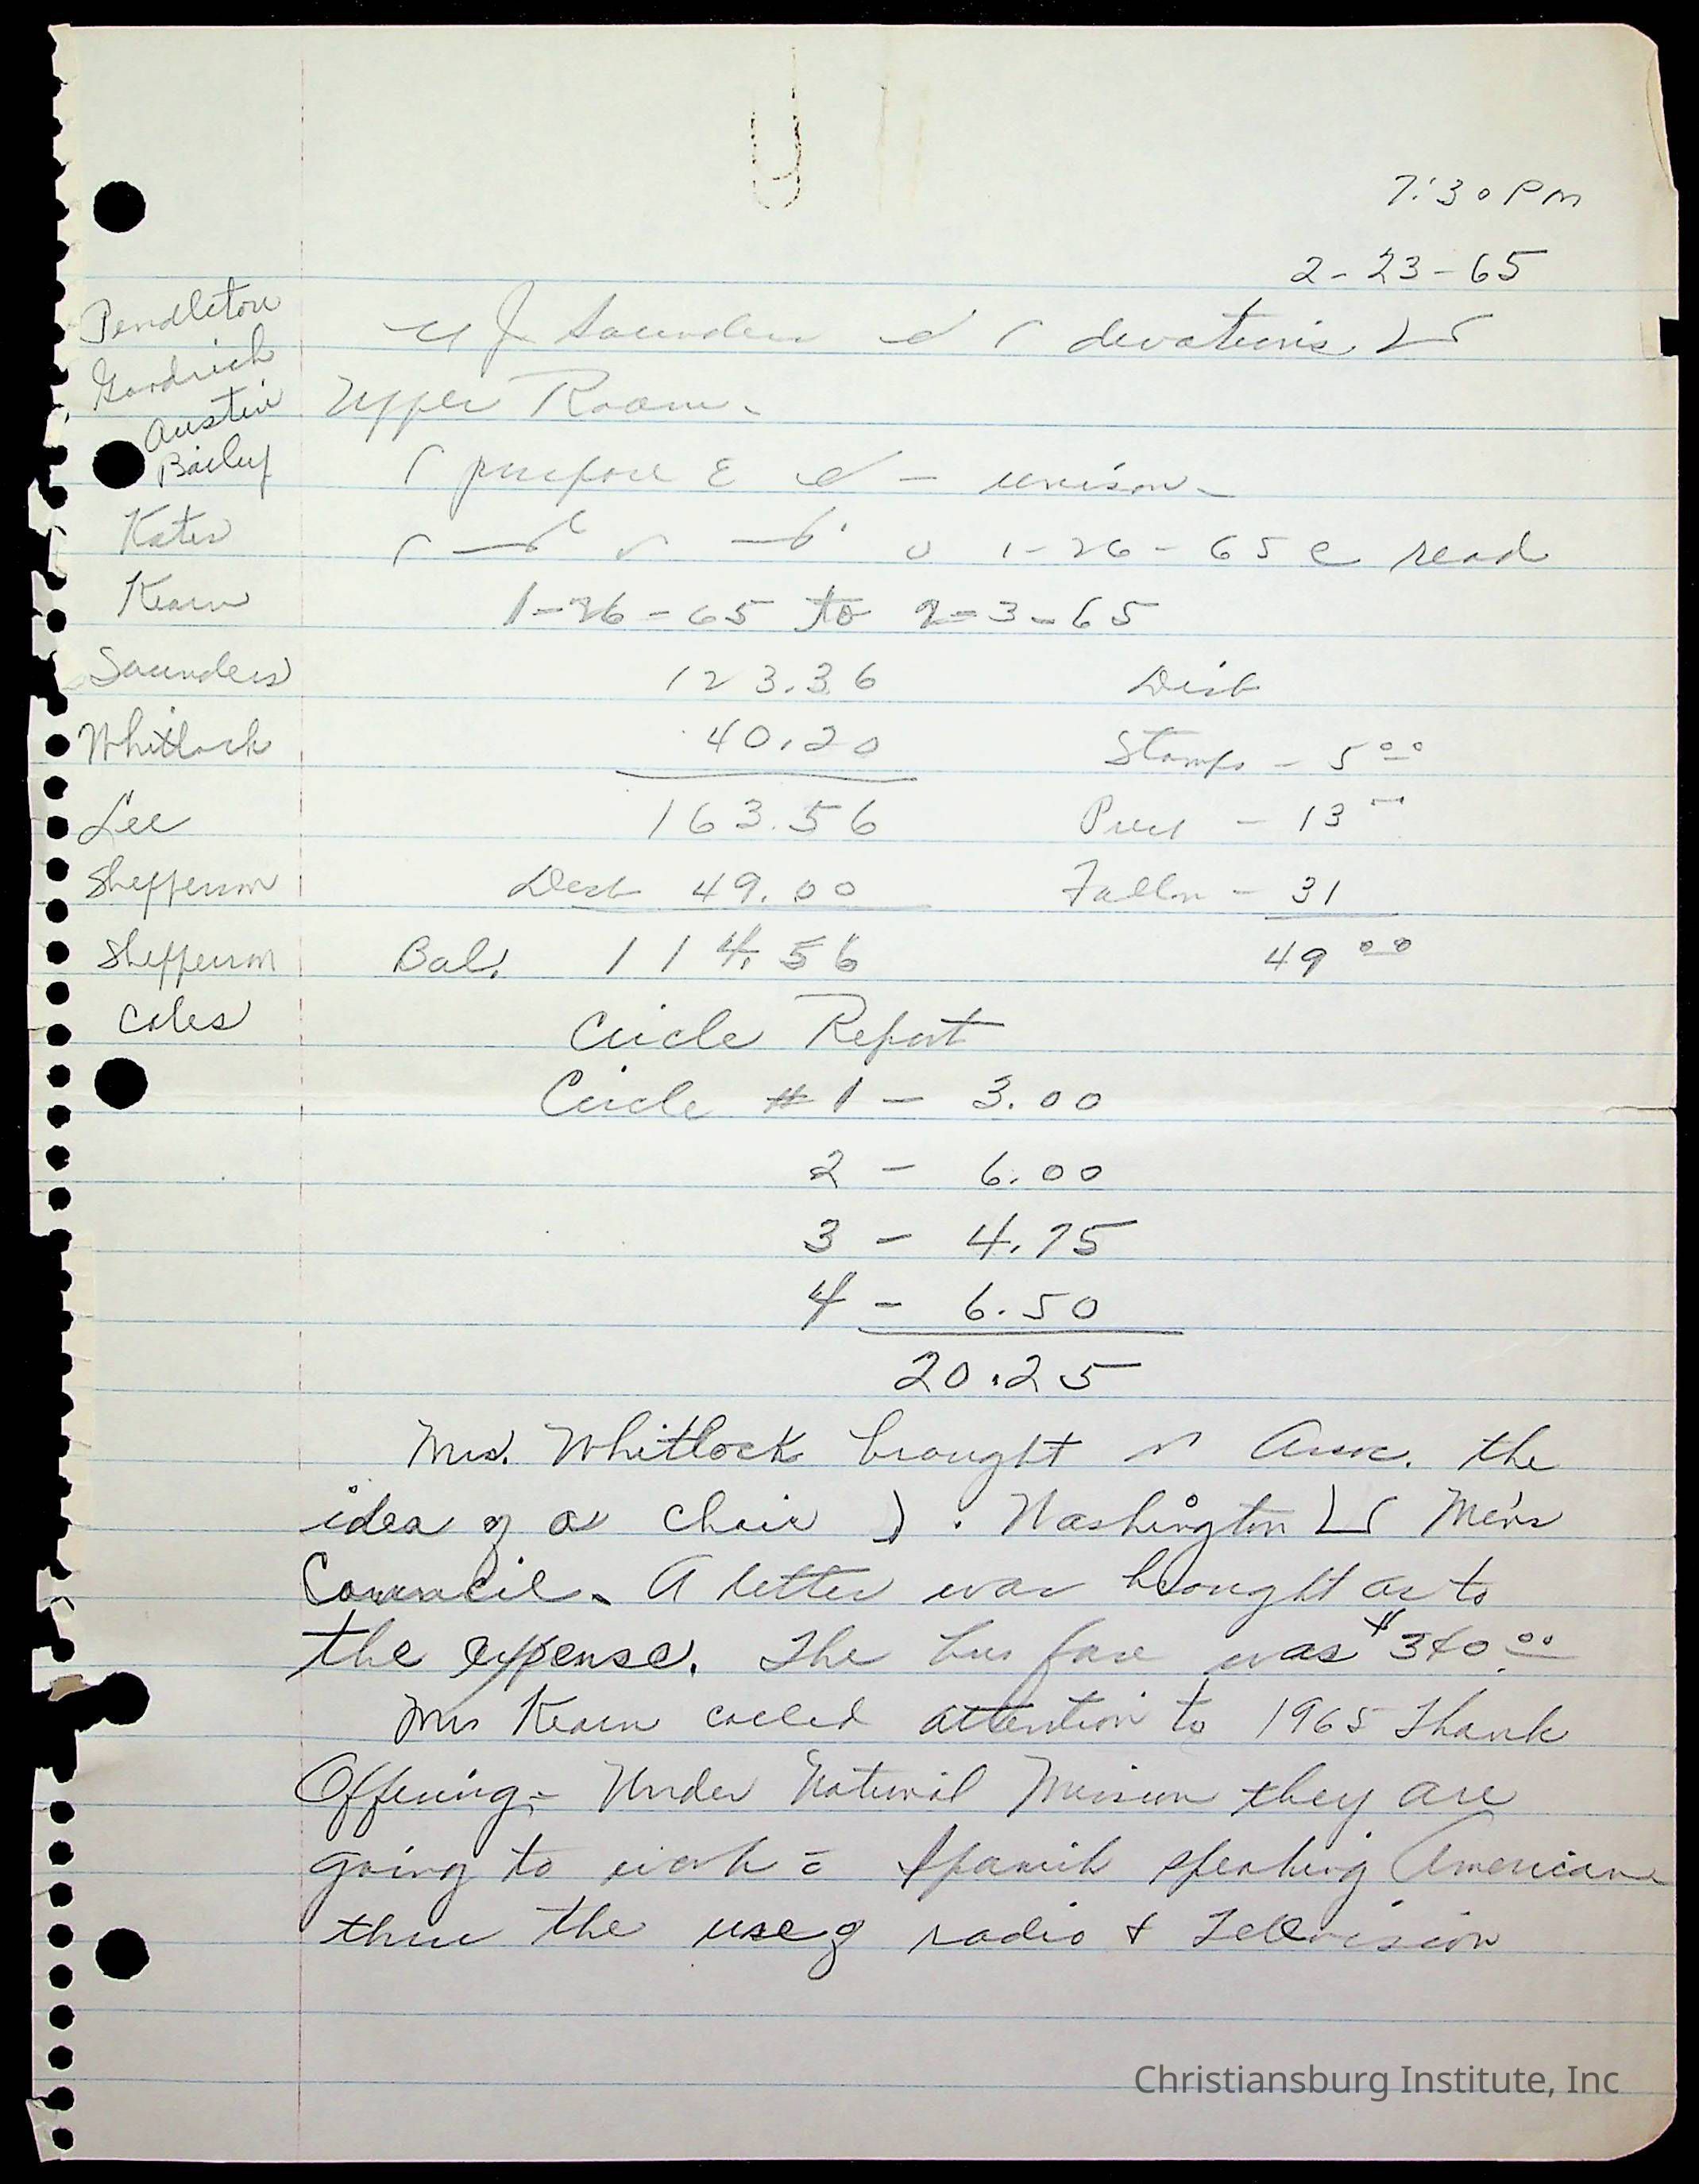 7:30 PM
2-23-65
Pendleton
Goodrich
Austin
Bailey
Kates
Kearn
Saunders
Whitlock
Lee
Shefferson
Shefferson
Coles
Saunders devotions
Upper Room.
purpose - unison -
1-26-65 read
1-26-65 to 2-3-65
123.36
40.20
163.56
Disb 49.00
Bal. 114.56
Disb
Stamps - 5 00
13
Fallon - 31
49 00
Circle Report
Circle #1 - 3.00
2 - 6.00
3 - 4.75
4 - 6.50
20.25
Mrs. Whitlock brought the
idea of a Washington Men's
Council. A letter was brought as to
the expense. The bus fare was $340.00
Mrs Kearn called attention to 1965 Thank
Offering - Under National Mission they are
going to work Spanish speaking American
thru the use of radio + Television
Christiansburg Institute, Inc